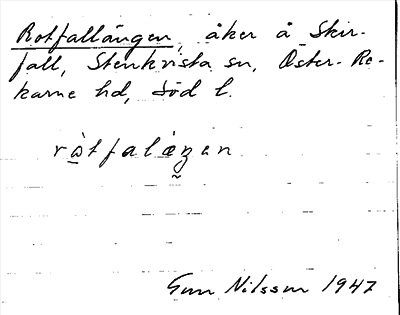 Rotfallängen, åker å Skir-
fall, Stenkvista sn, Öster-Re-
karne hd, Söd l.
ròtfalæŋen
Gun Nilsson 1947